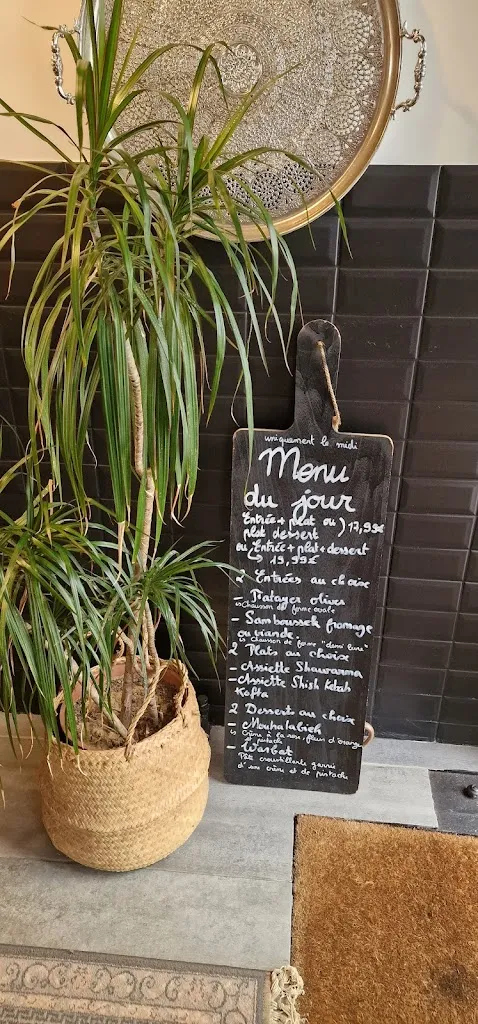 uniquement le midi
Menu
du jour
Entrée + plat ou ) 17,99€
plat dessert
ou Entrée + plat + dessert
↳ 19,99€
2 Entrées au choix
- Fatayer olives
↳ Chausson de forme ovale
- Samboussek fromage
ou viande.
↳ Chausson de forme "demi lune"
2 Plats au choix
- Assiette Shawarma
- Assiette Shish Kebab
Kafta
2 Desserts au choix
- Mouhalabieh
↳ Crème à la rose, fleurs d'orange
et pistache
- Warbat
Pâte croustillante garnie
d'une crème et de pistache